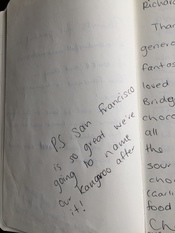 P.S San Francisco
is so great we're
going to name
our kangaroo after
it!
Richard
Than
genero
fantas
loved
Bridg
choco
all
the
sour
choc
(Garli
food
Ch